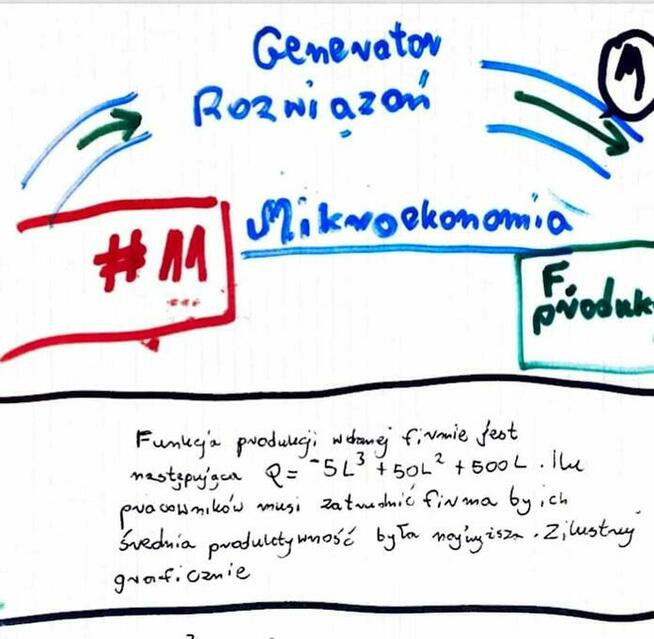 Generator
Rozwiązań
1
Mikroekonomia
#11
F.
produk
Funkcja produkcji w danej firmie jest
następująca Q = -5L³ + 50L² + 500L. Ilu
pracowników musi zatrudnić firma by ich
średnia produktywność była najwyższa. Zilustruj
graficznie